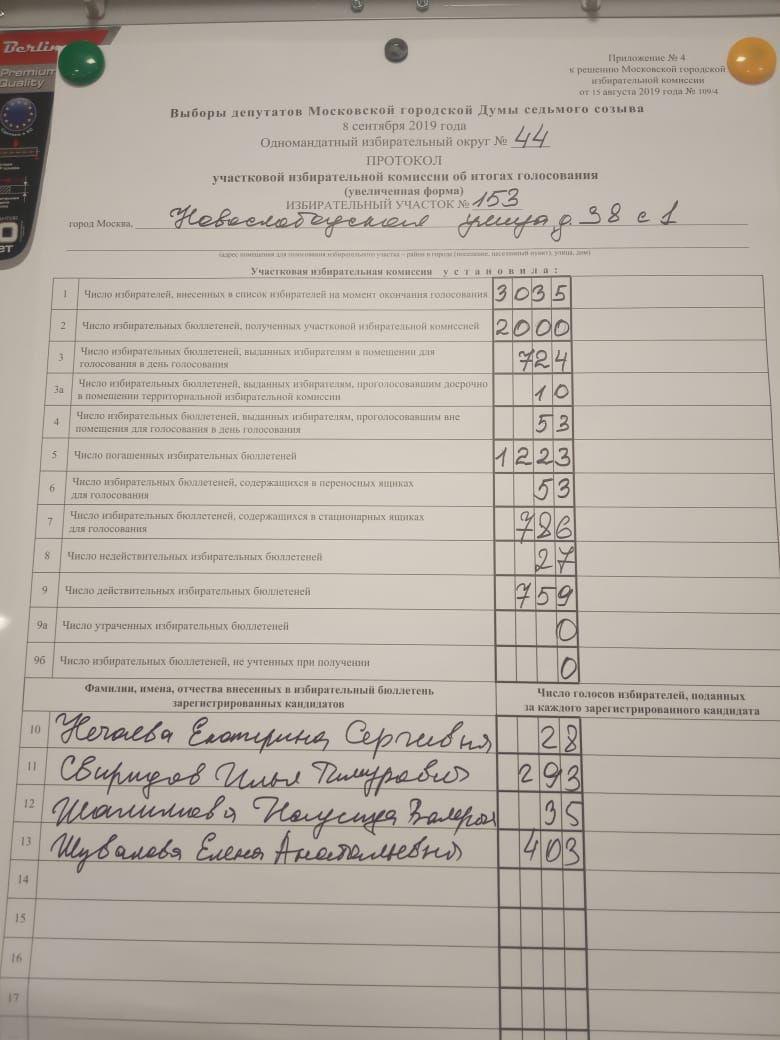 Berlin
Premium
Quality
Приложение № 4
к решению Московской городской
избирательной комиссии
от 15 августа 2019 года № 109/4
Выборы депутатов Московской городской Думы седьмого созыва
8 сентября 2019 года
Одномандатный избирательный округ № 44
ПРОТОКОЛ
участковой избирательной комиссии об итогах голосования
(увеличенная форма)
ИЗБИРАТЕЛЬНЫЙ УЧАСТОК № 153
город Москва, Новослободская улица д. 38 с 1
(адрес помещения для голосования избирательного участка – район в городе (поселение, населенный пункт), улица, дом)
Участковая избирательная комиссия установила:
1 Число избирателей, внесенных в список избирателей на момент окончания голосования 3035
2 Число избирательных бюллетеней, полученных участковой избирательной комиссией 2000
3 Число избирательных бюллетеней, выданных избирателям в помещении для
голосования в день голосования 724
3а Число избирательных бюллетеней, выданных избирателям, проголосовавшим досрочно
в помещении территориальной избирательной комиссии 10
4 Число избирательных бюллетеней, выданных избирателям, проголосовавшим вне
помещения для голосования в день голосования 53
5 Число погашенных избирательных бюллетеней 1223
6 Число избирательных бюллетеней, содержащихся в переносных ящиках
для голосования 53
7 Число избирательных бюллетеней, содержащихся в стационарных ящиках
для голосования 786
8 Число недействительных избирательных бюллетеней 27
9 Число действительных избирательных бюллетеней 759
9а Число утраченных избирательных бюллетеней 0
9б Число избирательных бюллетеней, не учтенных при получении 0
Фамилии, имена, отчества внесенных в избирательный бюллетень
зарегистрированных кандидатов
Число голосов избирателей, поданных
за каждого зарегистрированного кандидата
10 Нечаева Екатерина Сергеевна 28
11 Свиридов Илья Тимурович 293
12 35
13 Шувалова Елена Анатольевна 403
14
15
16
17